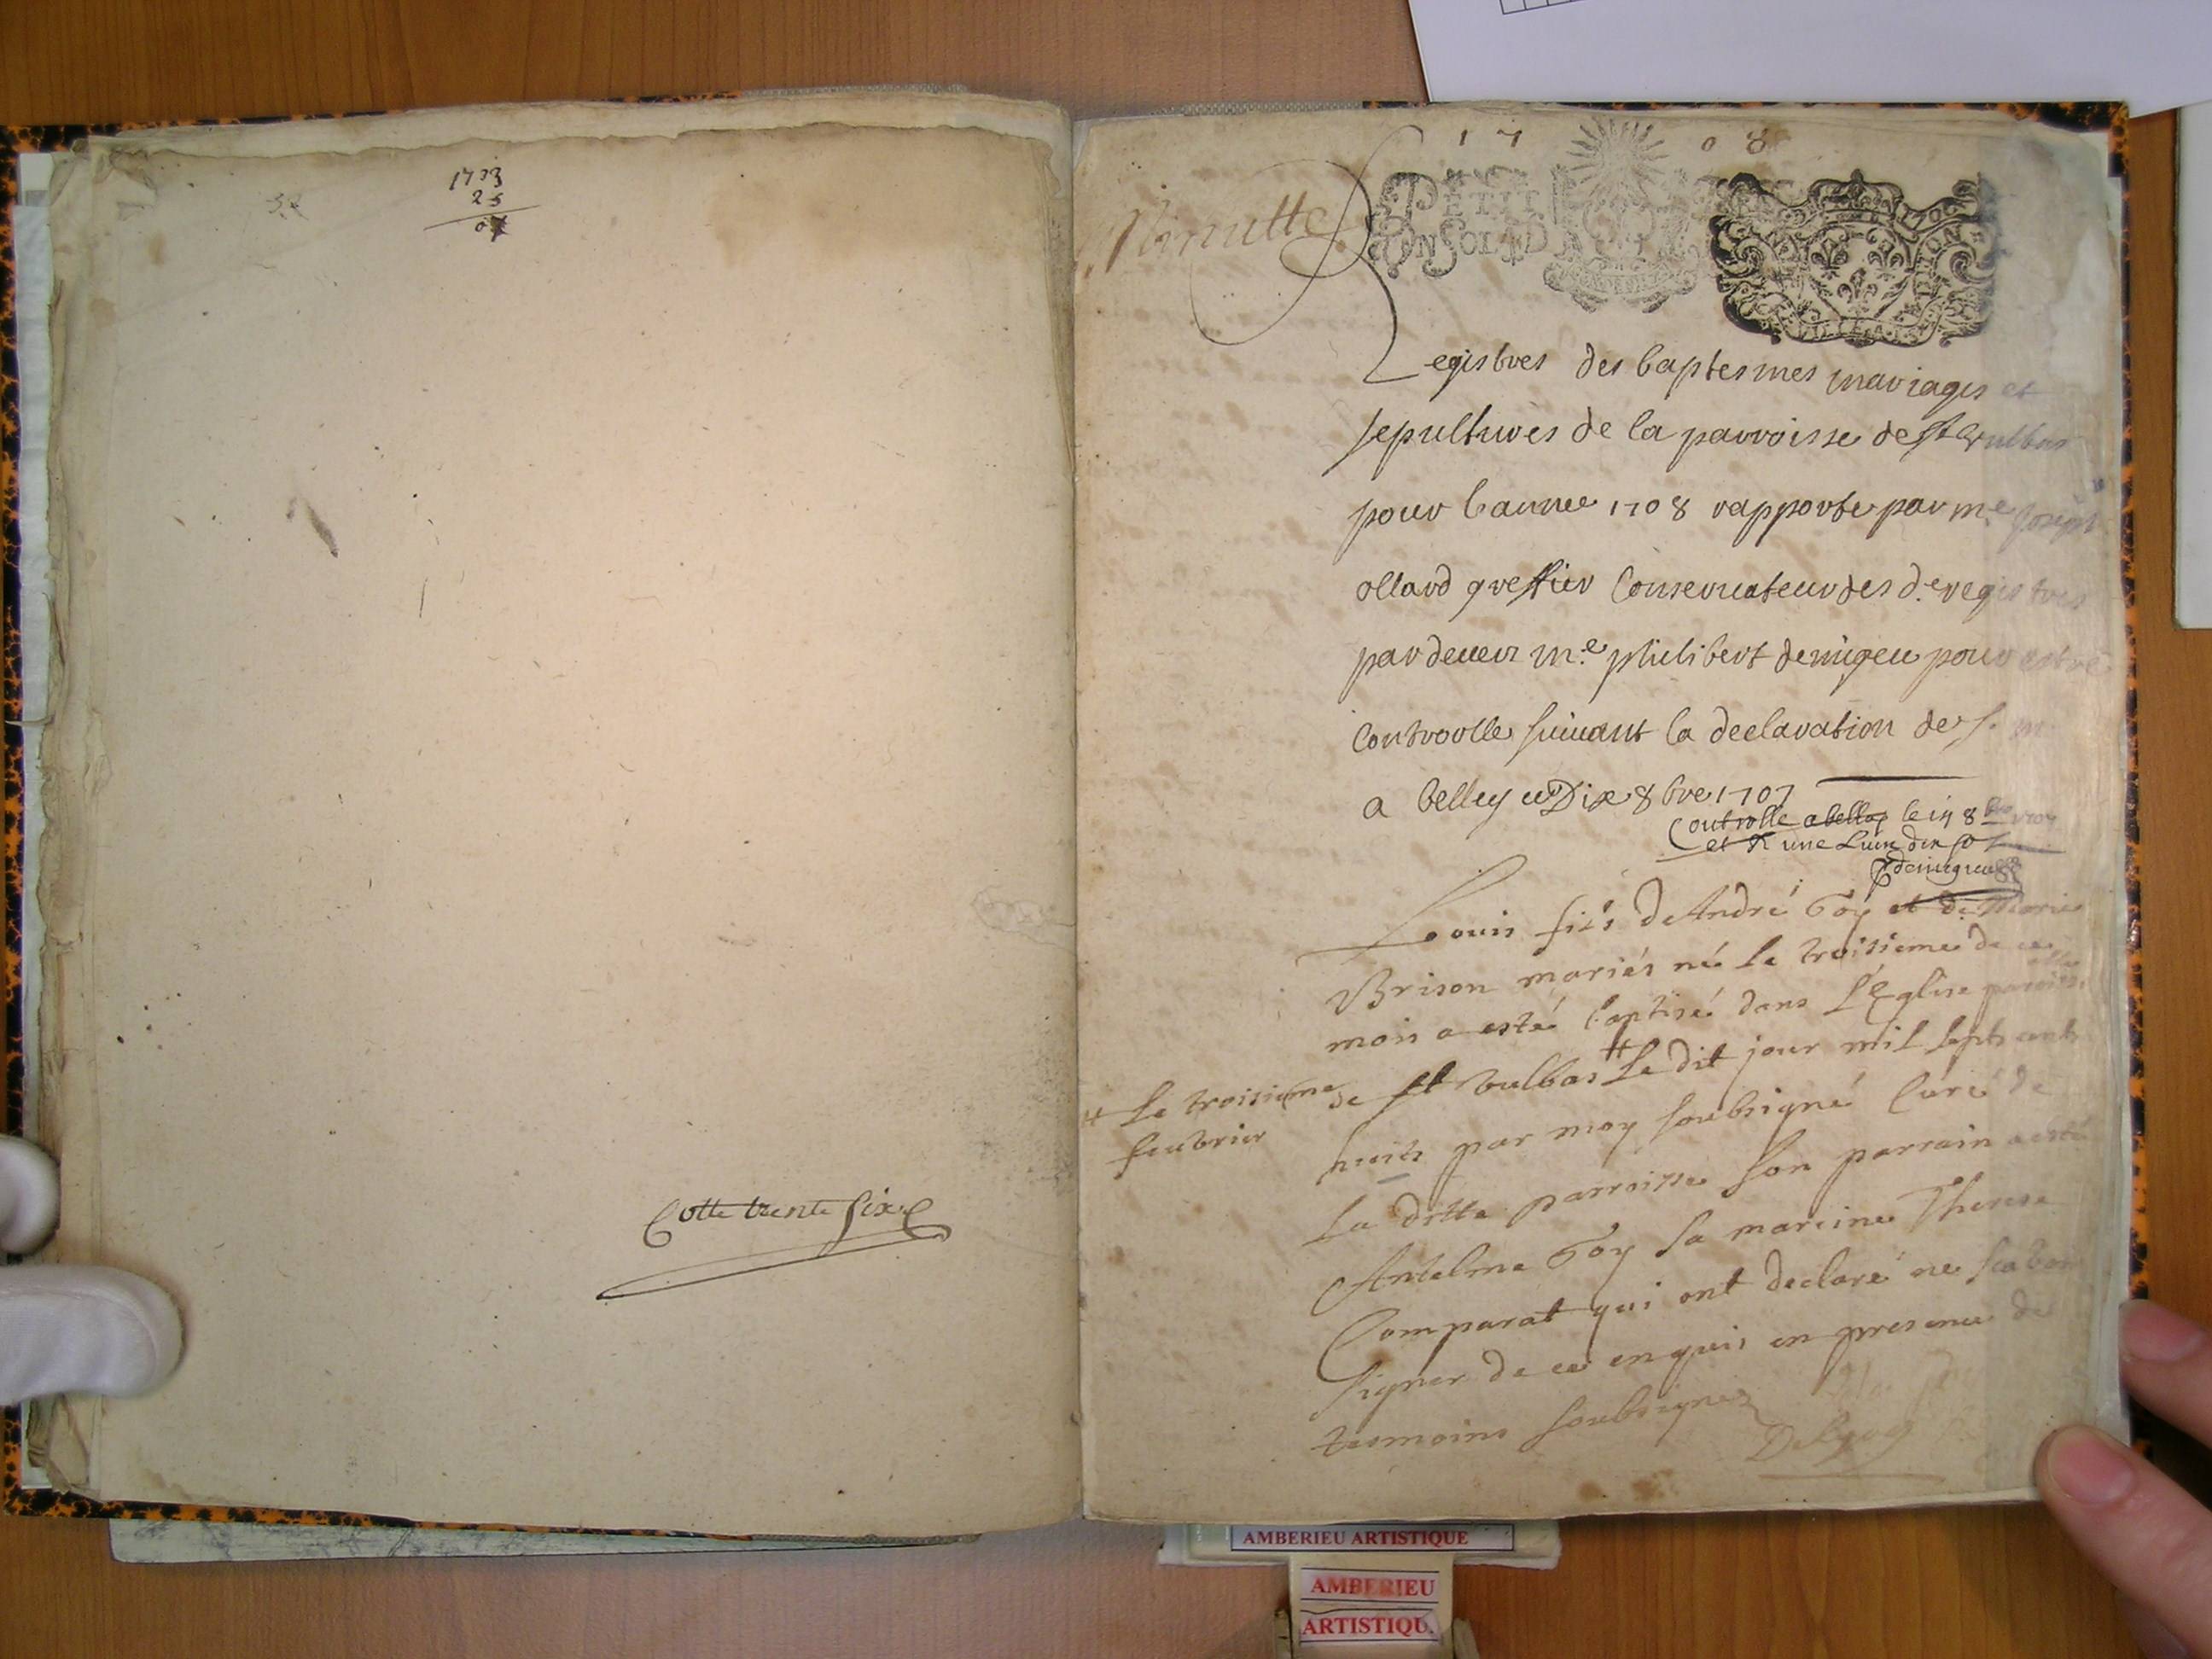 1733
25
07
Cotte trente Six
1708
Minutte
PETIT
EN SOL
Registres des baptesmes mariages et
sepultures de la parroisse de st Vulbas
pour lannee 1708 rapporte par me Joseph
ollard greffier Conservateur des d. registres
pardevers m.e philibert demigeu pour estre
Controolle suivant la declaration de s. m.
a belley ce Dix 8bre 1707
Controlle a belley le 14 8bre 1707
et R une Livre dix s
demigeu
Louis fils de André Goy et de Marie
Brison mariés né le troisieme de ce
mois a esté baptisé dans L'Eglise
de st Vulbas # Le dit jour mil sept cent
# Le troisieme
feuvrier
huits par moy soubsigné Curé de
La ditte parroisse son parrain a esté
Antelme Goy sa mareine Therese
Comparat qui ont declaré ne scavoir
signer de ce enquis en presence de
tesmoins soubsignez
AMBERIEU ARTISTIQUE
AMBERIEU
ARTISTIQU